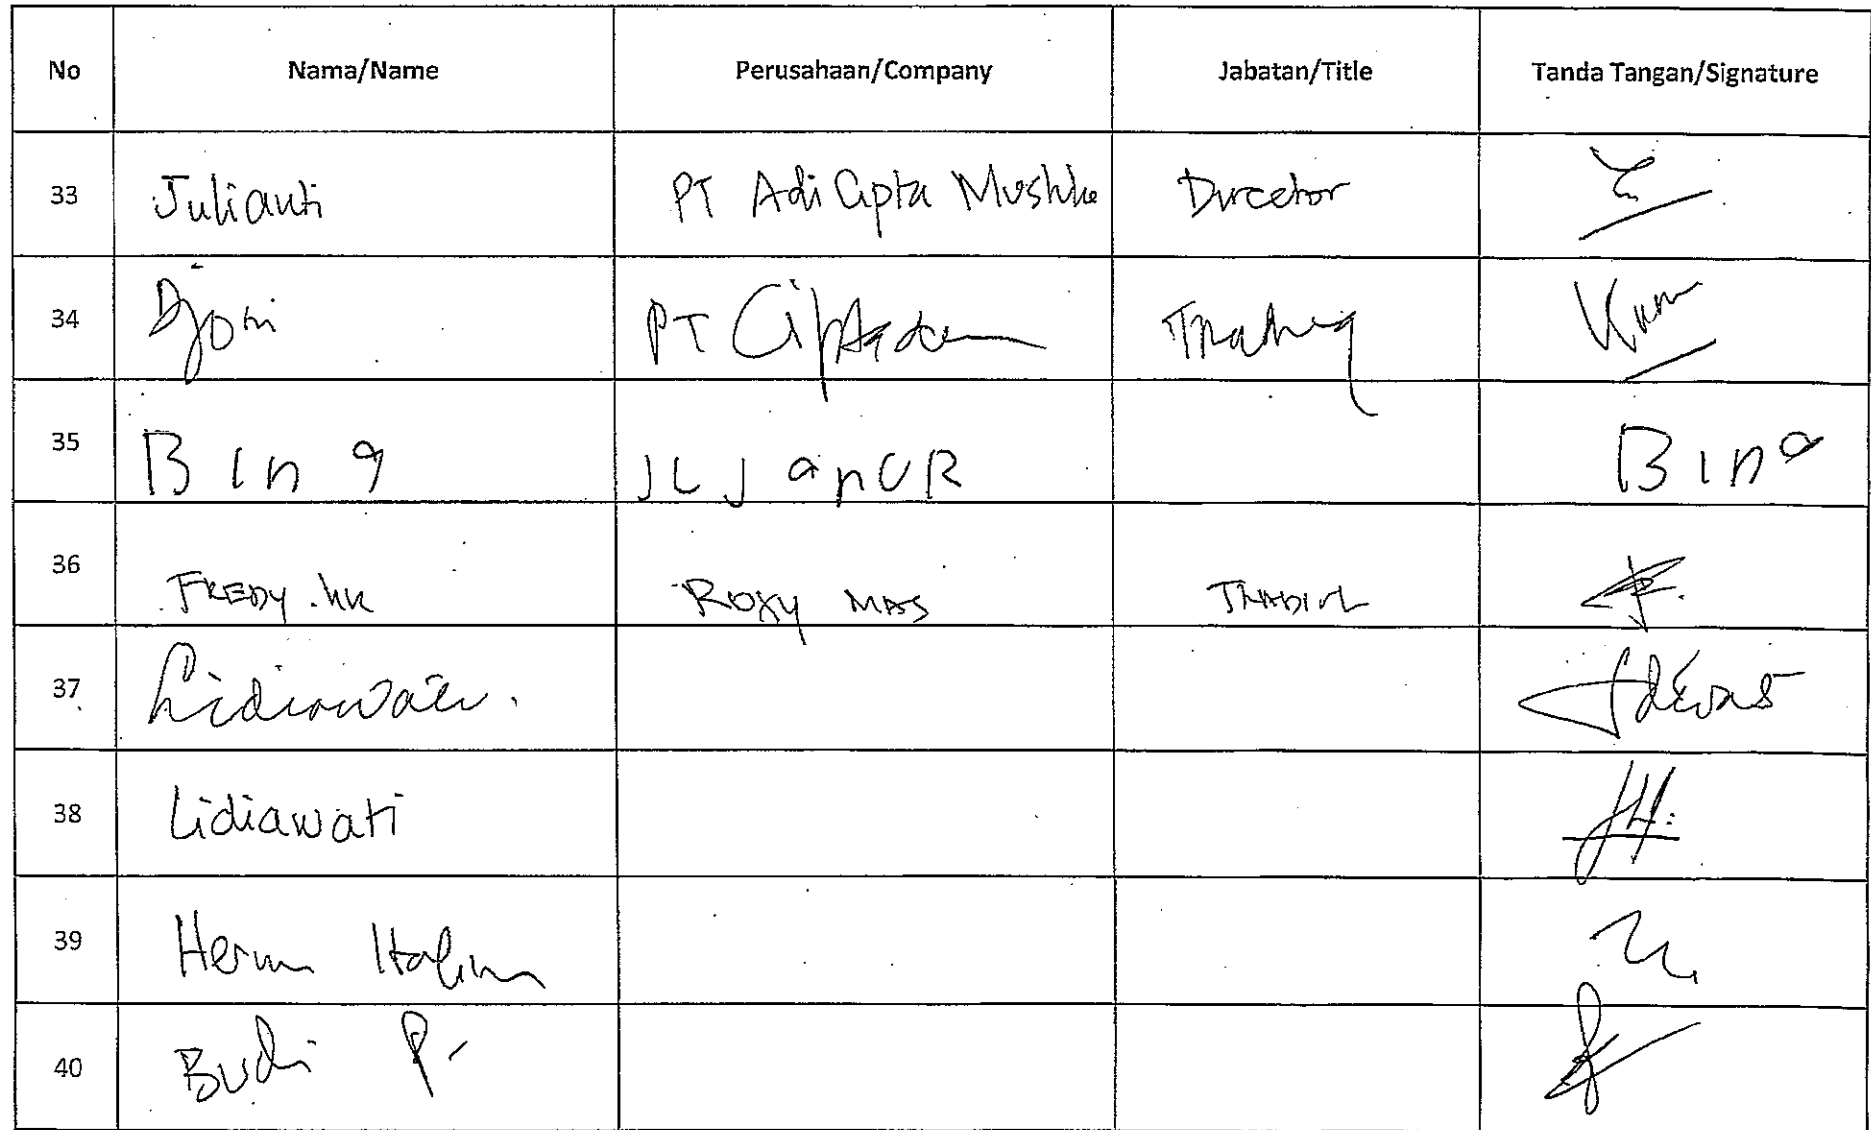 No Nama/Name Perusahaan/Company Jabatan/Title Tanda Tangan/Signature
33 Julianti PT Adi Cipta Director
34 Djoni PT Trading
35 Bina JL JapUR Bina
36 FREDY . ROXY MAS TRADING
37 Lidiawati.
38 Lidiawati
39 Herman Halim
40 Budi P.